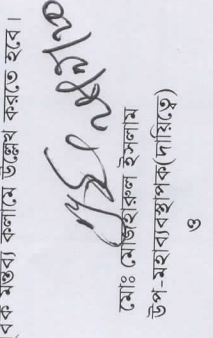 বক মন্তব্য কলামে উল্লেখ করতে হবে।
মোঃ মোজহারুল ইসলাম
উপ-মহাব্যবস্থাপক(দায়িত্বে)
ও